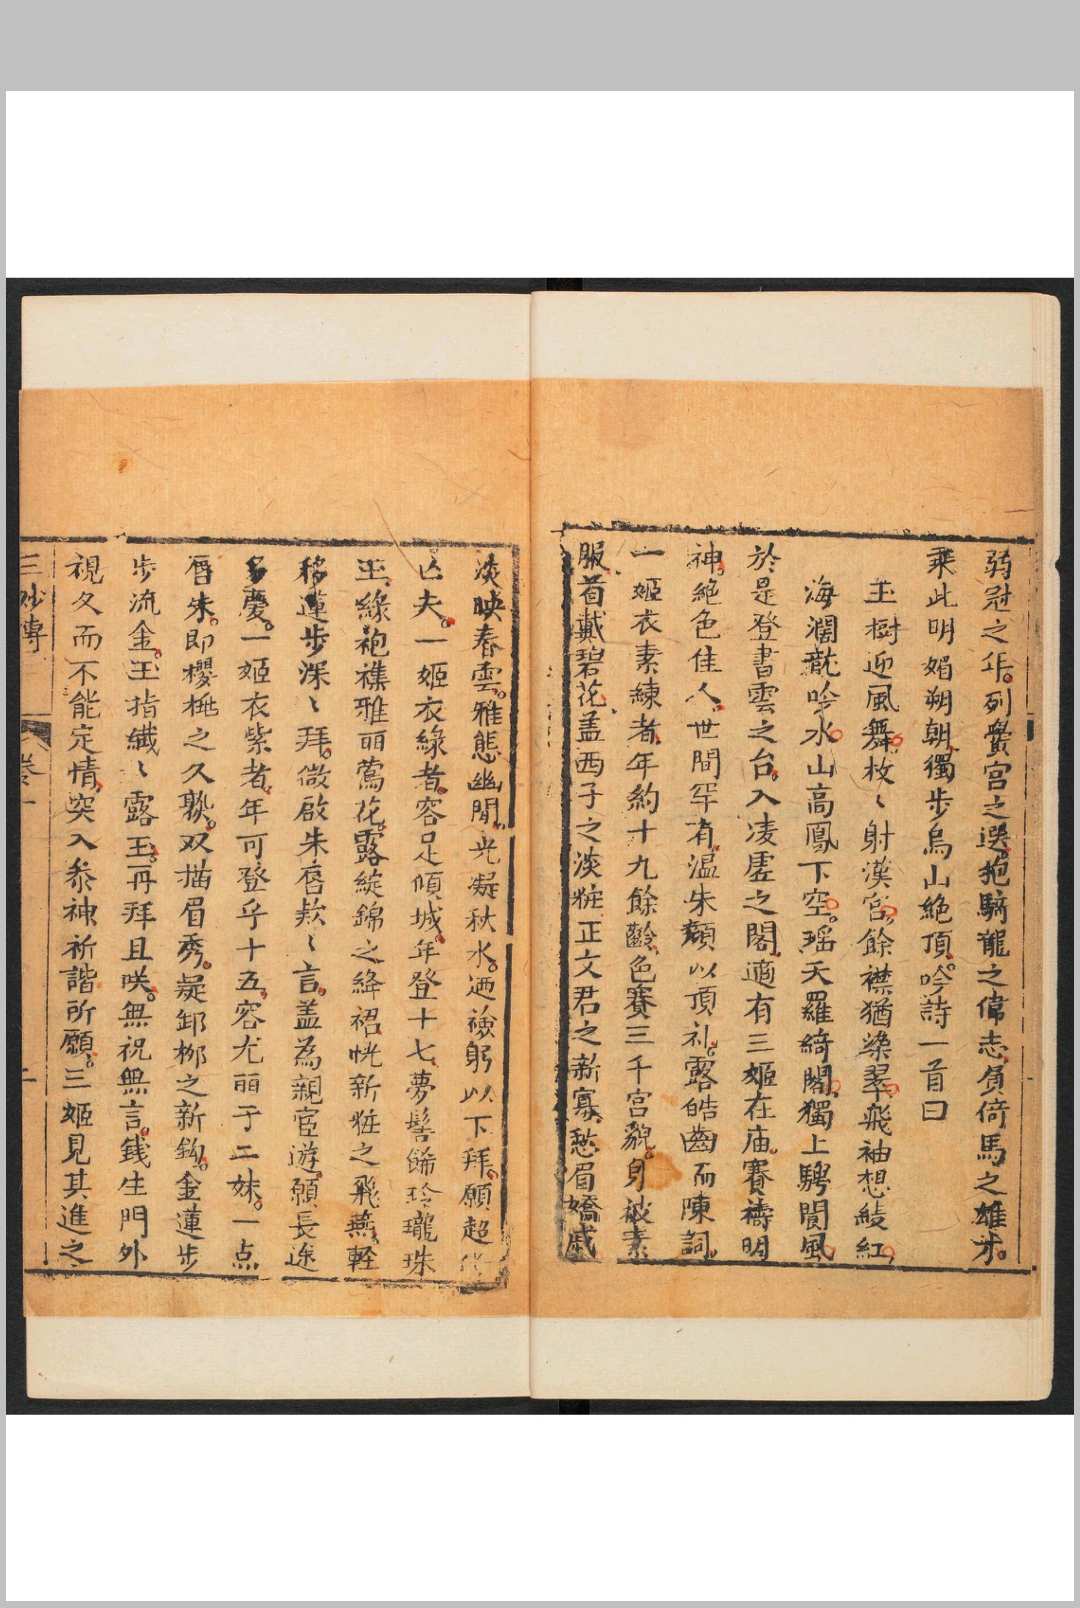 弱冠之年列黌宮之選抱驕龍之偉志負倚馬之雄才
乘此明媚朔朝獨步烏山絶頂吟詩一首曰
玉樹迎風舞枚〻射漢宮餘襟猶染翠飛袖想綾紅
海濶龍吟水山高鳳下空瑶天羅綺閣獨上騁閬風
於是登書雲之台入凌虗之閣適有三姬在庙賽禱明
神絶色佳人世間罕有温朱顏以頂礼露皓齒而陳詞
一姬衣素練者年約十九餘齡色賽三千宮貌身被素
服首戴碧花盖西子之淡粧正文君之新寡愁眉嬌戚
淡映春雲雅態幽閒光凝秋水迺襝躬以下拜願超
亾夫一姬衣綠者容足傾城年登十七夢髻餙玲瓏珠
玉綠袍襍雅丽鶯花露綻錦之絳裙恍新粧之飛燕軽
移蓮步深〻拜微啟朱唇欵〻言盖為親宦遊願長途
多慶一姬衣紫者年可登乎十五容尤丽于二妹一点
唇朱即櫻桃之久熟双描眉秀疑卸栁之新鈎金蓮步
步流金玉指纎〻露玉再拜且咲無祝無言錢生門外
視久而不能定情突入叅神祈諧所願三姬見其進之
三妙傳 卷一